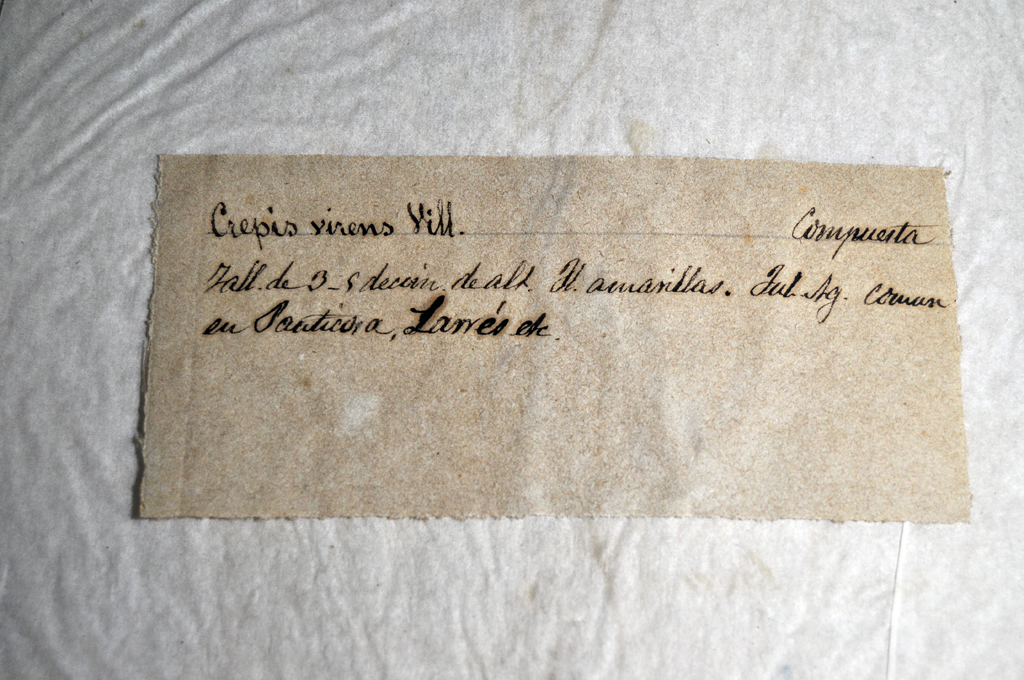 Crepis virens Vill. Compuesta
Tall. de 3-5 decim. de alt. Fl. amarillas. Jul. Ag. comun
en Panticosa, Larrés etc.